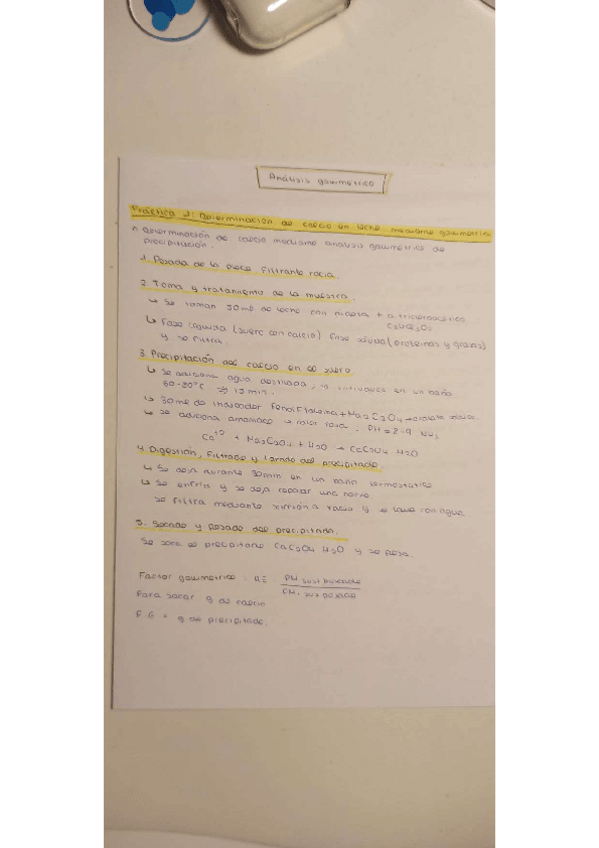 Análisis gravimétrico
Práctica 1: Determinación de calcio en leche mediante gravimetría
Determinación de calcio mediante análisis gravimétrico de
precipitación.
1. Pesada de la placa filtrante vacía.
2. Toma y tratamiento de la muestra.
↳ Se toman 50mL de leche con pipeta + a. tricloroacético
C2HCl3O2
↳ Fase líquida (suero con calcio) Fase sólida (proteínas y grasas)
y se filtra.
3. Precipitación del calcio en el suero.
↳ Se adiciona agua destilada, y introduces en un baño
60-80°C 15 min.
↳ 30mL de indicador fenolftaleína + Na2C2O4 → oxalato
↳ se adiciona amoniaco → color rosa : pH = 8-9 NH3
Ca+2 + Na2C2O4 + H2O → CaC2O4 H2O
4. Digestión, filtrado y lavado del precipitado.
↳ Se deja durante 30min en un baño termostático
↳ Se enfría y se deja reposar una noche
se filtra mediante succión a vacío y se lava con agua.
5. Secado y pesado del precipitado.
Se seca el precipitado CaC2O4 H2O y se pesa.
Factor gravimétrico : PM sust buscada
PM. sust pesada
Para sacar g de calcio
F.G = g de precipitado.